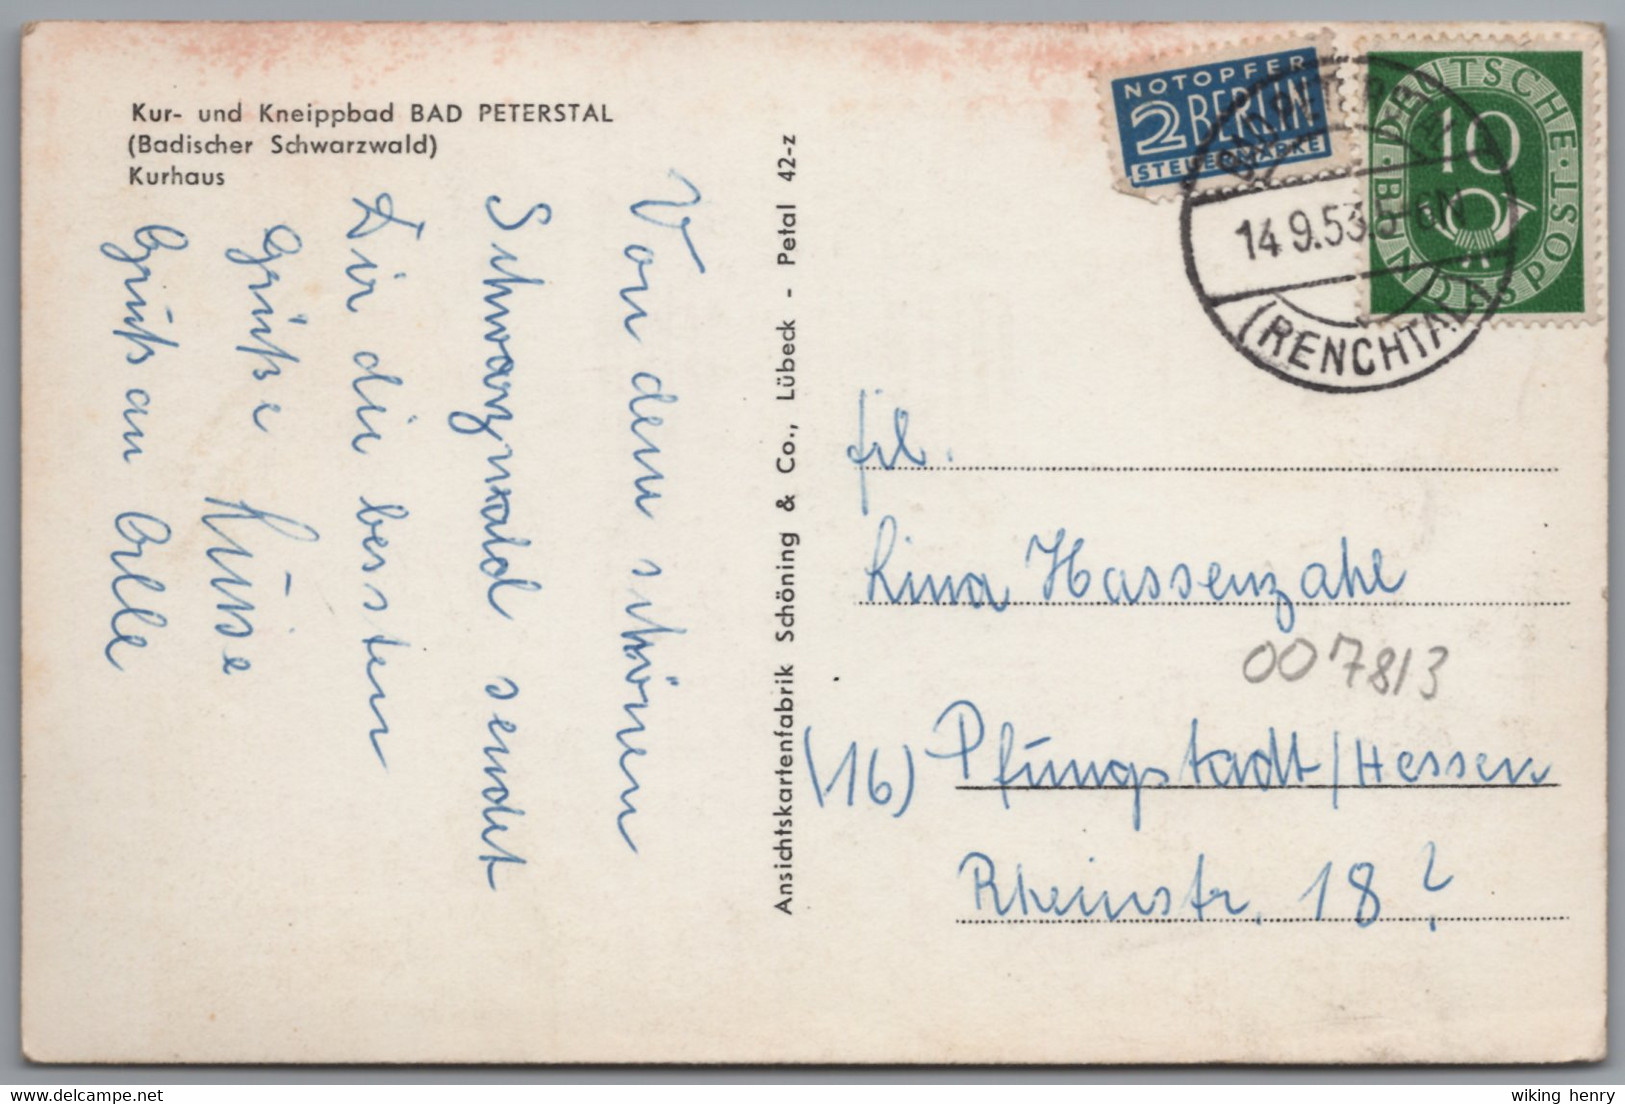 Kur- und Kneippbad BAD PETERSTAL
(Badischer Schwarzwald)
Kurhaus
Von dem schönen
Schwarzwald sendet
Dir die bessten
Grüße
Gruß an Alle
Ansichtskartenfabrik Schöning & Co., Lübeck - Petal 42-z
NOTOPFER
2 BERLIN
STEUERMARKE
DEUTSCHE BUNDESPOST
10
BAD PETERSTAL
14.9.53.5-6N
(RENCHTAL)
Frl.
Lina Hassenzahl
007813
(16) Pfungstadt/Hessen
Rheinstr. 18?
wiking henry